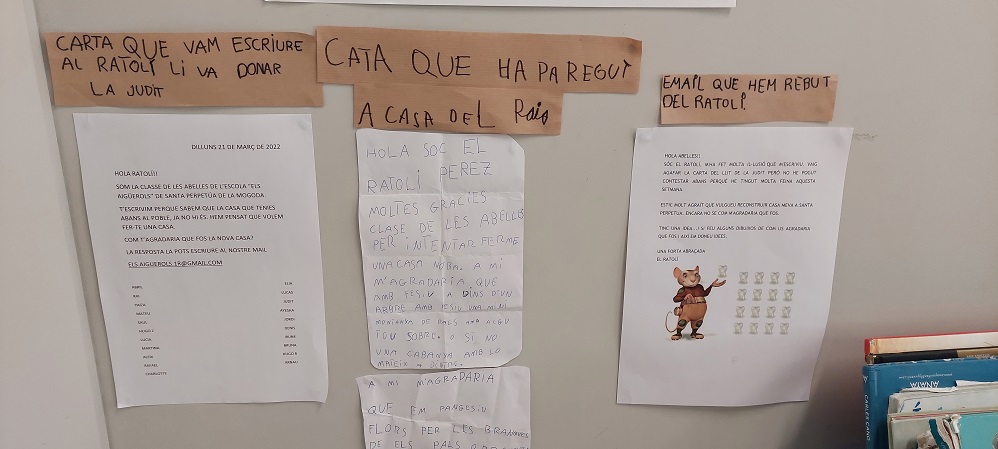 CARTA QUE VAM ESCRIURE
AL RATOLÍ LI VA DONAR
LA JUDIT
DILLUNS 21 DE MARÇ DE 2022
HOLA RATOLÍ!!
SOM LA CLASSE DE LES ABELLES DE L'ESCOLA "ELS
AIGÜEROLS" DE SANTA PERPETUA DE LA MOGODA
T'ESCRIVIM PERQUE SABEM QUE LA CASA QUE TENIES
ABANS AL POBLE, JA NO HI ÉS. HEM PENSAT QUE VOLEM
FER-TE UNA CASA.
COM T'AGRADARIA QUE FOS LA NOVA CASA?
LA RESPOSTA LA POTS ESCRIURE AL NOSTRE MAIL
ELS.AIGUEROLS.1R@GMAIL.COM
MARTINA
RAFAEL
CHARLOTTE
ELIA
LUCAS
JUDIT
JORDI
DENIS
BRUNA
HUGO R
CATA QUE HA PAREGUT
A CASA DEL
HOLA SOC EL
RATOLI PEREZ
MOLTES GRACIES
CLASE DE LES ABELLES
PER INTENTAR FERME
UNA CASA NOBA. A MI
M'AGRADARIA QUE
FES.IU A DINS D'UN
ARBRE AMB FESIU UNA MINI
MONTANYA DE PALS AMB ALGU
TOU SOBRE. O SI NO
UNA CABANYA AMB LO
MATEIX A DINTRE.
A MI M'AGRADARIA
QUE EM PANGES.IU
FLORS PER LES BRANQUES
DE ELS PALS
EMAIL QUE HEM REBUT
DEL RATOLÍ.
HOLA ABELLES!!
SÓC EL RATOLÍ, M'HA FET MOLTA IL·LUSIÓ QUE M'ESCRIVIU. VAIG
AGAFAR LA CARTA DEL LLIT DE LA JUDIT PERÒ NO HE POGUT
CONTESTAR ABANS PERQUÈ HE TINGUT MOLTA FEINA AQUESTA
SETMANA.
ESTIC MOLT AGRAÏT QUE VULGUEU RECONSTRUIR CASA MEVA A SANTA
PERPETUA. ENCARA NO SE COM M'AGRADARIA QUE FOS.
TINC UNA IDEA ..! SI FEU ALGUNS DIBUIXOS DE COM US AGRADARIA
QUE FOS I AIXÍ EM DONEU IDEES.
UNA FORTA ABRAÇADA
EL RATOLÍ